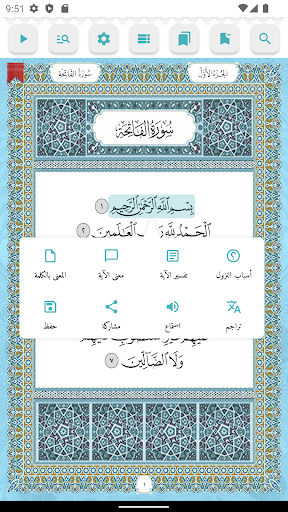 9:51
الجزء الأول
سورة الفاتحة
سُورَةُ الفَاتِحَةِ
بِسْمِ اللَّهِ الرَّحْمَٰنِ الرَّحِيمِ ١
الْحَمْدُ لِلَّهِ الْعَٰلَمِينَ ٢
أسباب النزول
تفسير الآية
معنى الآية
المعنى بالكلمة
تراجم
استماع
مشاركة
حفظ
وَلَا الضَّالِّينَ ٧
١